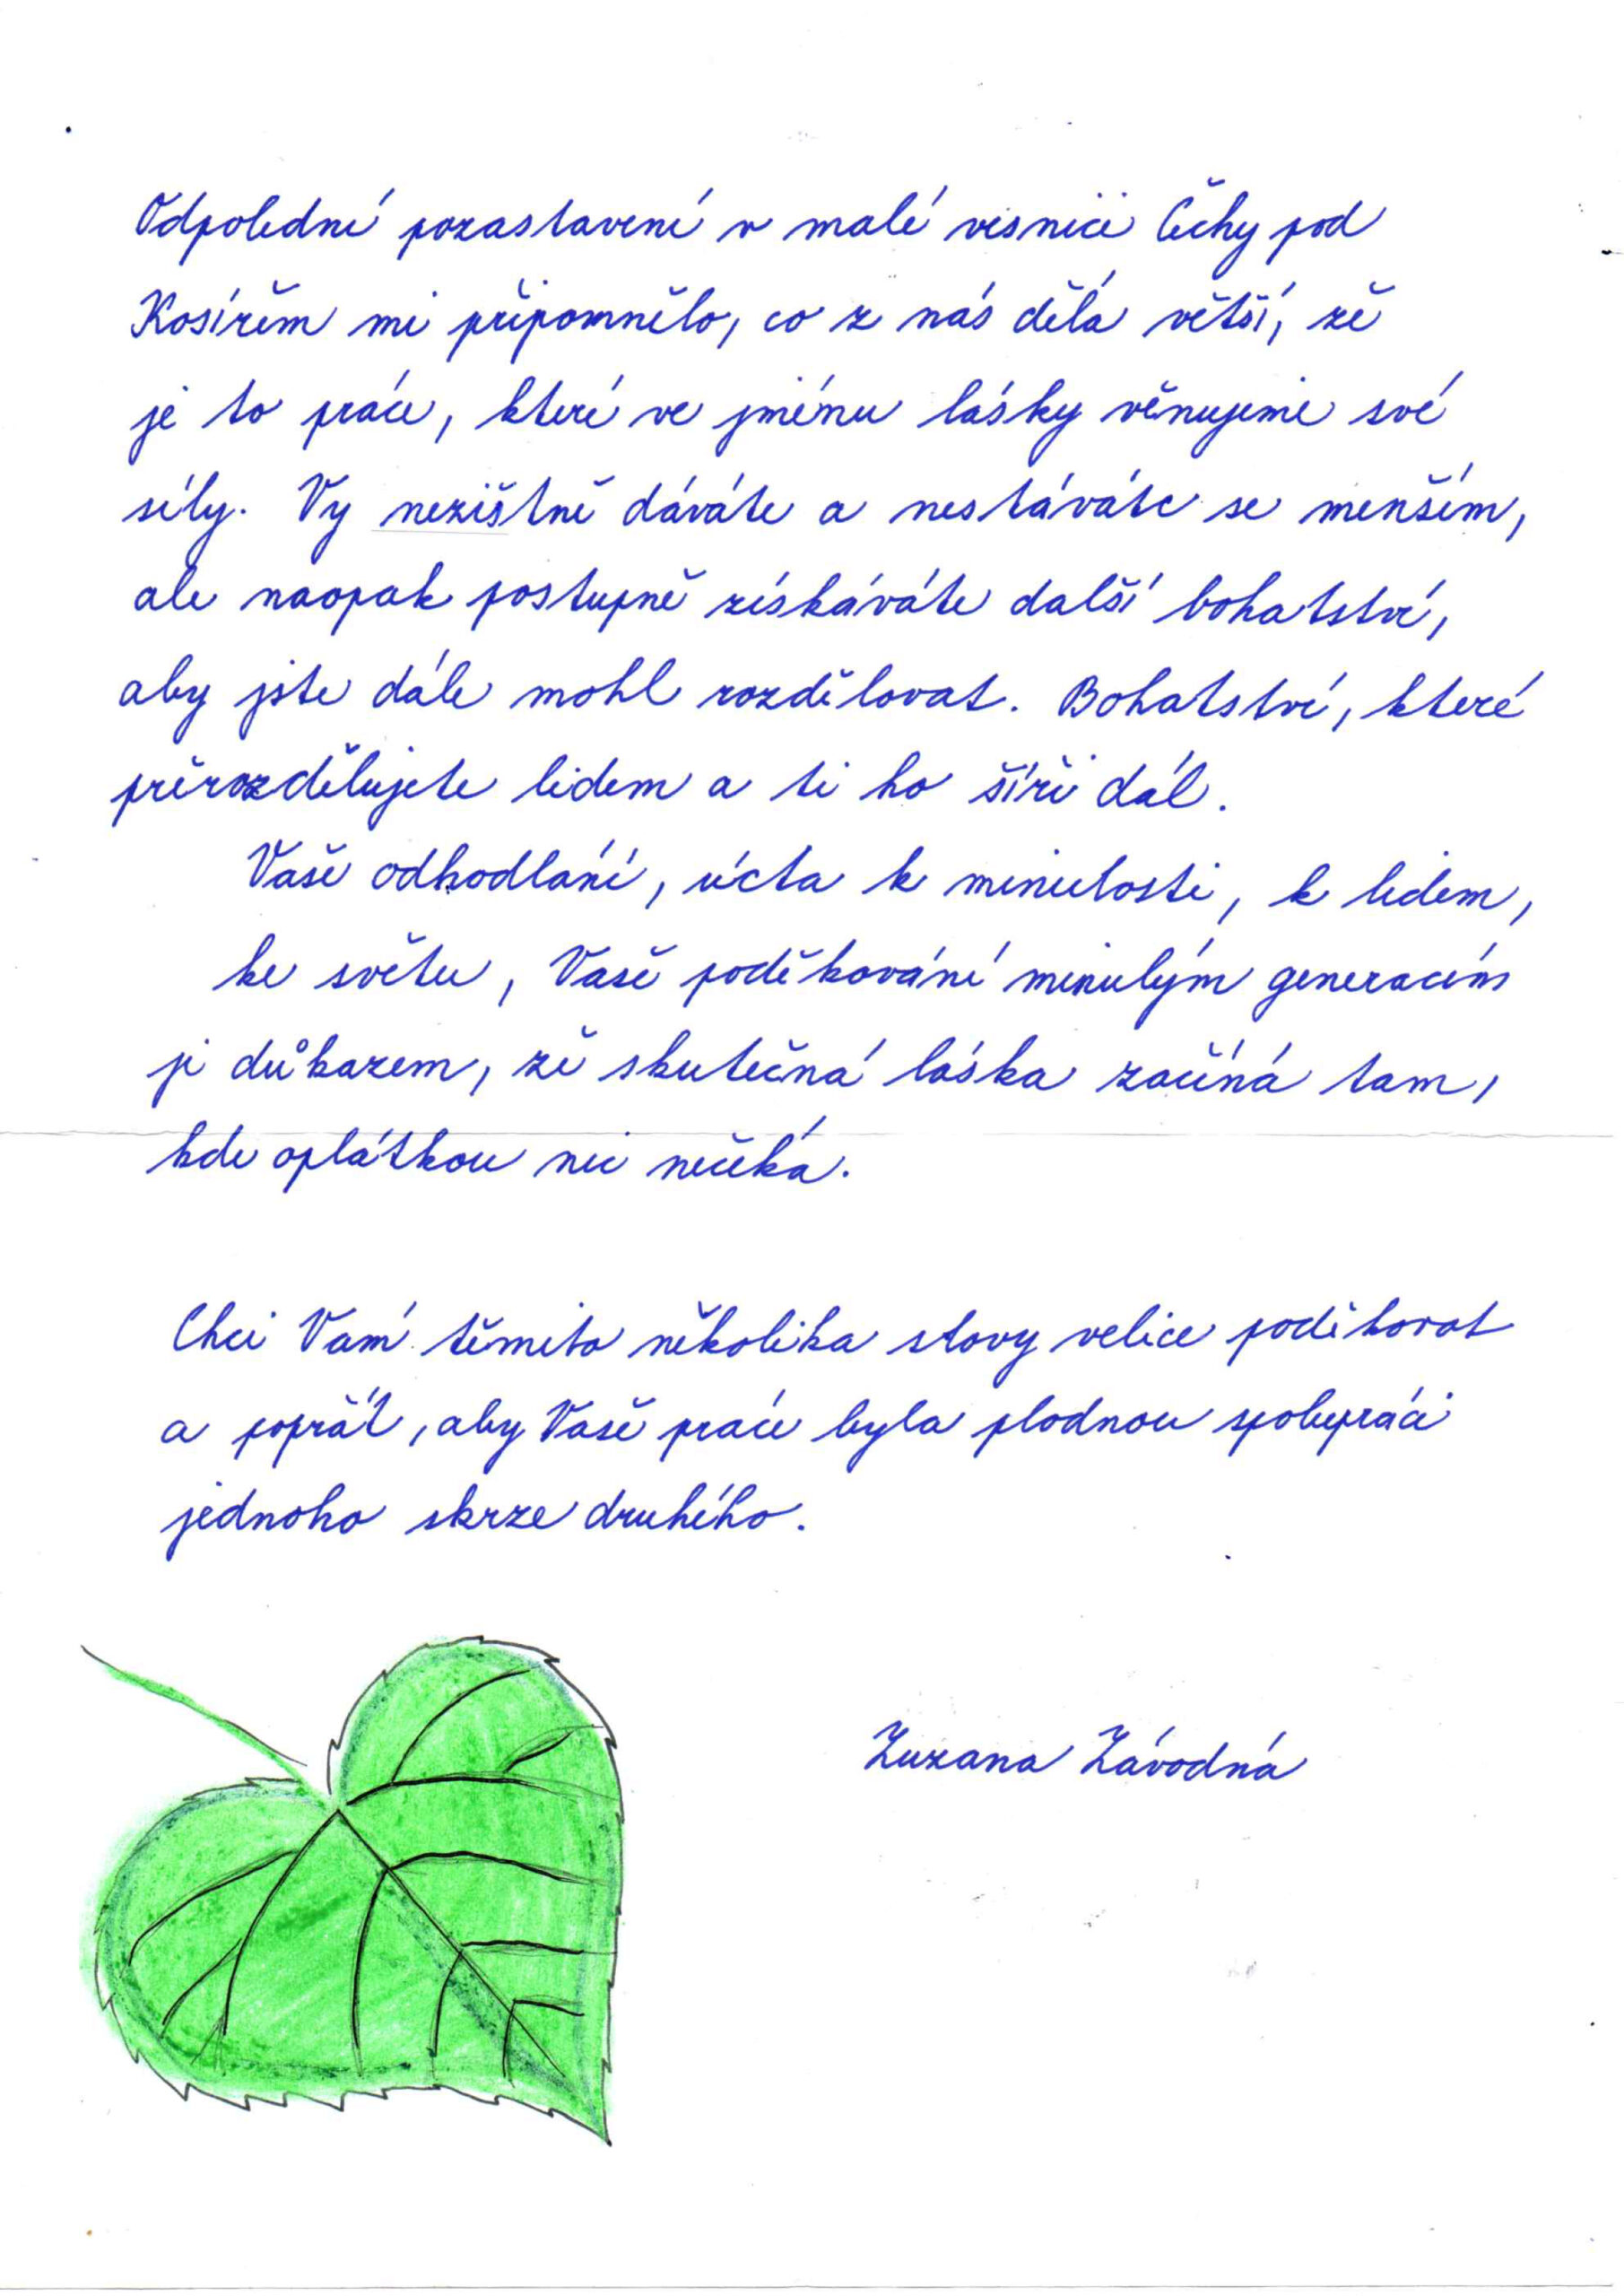 Odpolední pozastavení v malé vesnici Čechy pod
Kosířem mi připomnělo, co z nás dělá větší, že
je to práce, které ve jménu lásky věnujeme své
síly. Vy nezištně dáváte a nestáváte se menším,
ale naopak postupně získáváte další bohatství,
aby jste dále mohl rozdělovat. Bohatství, které
přerozdělujete lidem a ti ho šíří dál.
Vaše odhodlání, úcta k minulosti, k lidem,
ke světu, Vaše poděkování minulým generacím
je důkazem, že skutečná láska začíná tam,
kde oplátkou nic nečeká.
Chci Vám těmito několika slovy velice poděkovat
a popřát, aby Vaše práce byla plodnou spoluprací
jednoho skrze druhého.
Zuzana Závodná